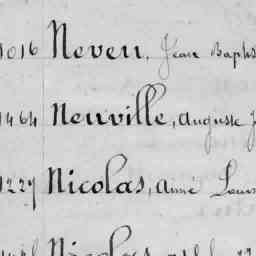 1016 Neveu, Jean Baptis
1464 Neuville, Auguste J
1227 Nicolas, Aimé Louis
Nicolas